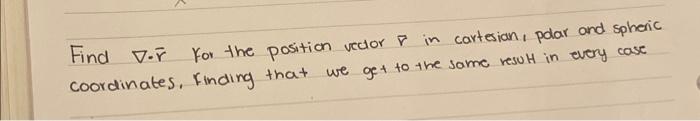 Find ∇·r̄ for the position vector r̄ in cartesian, polar and spheric
coordinates, finding that we get to the same result in every case